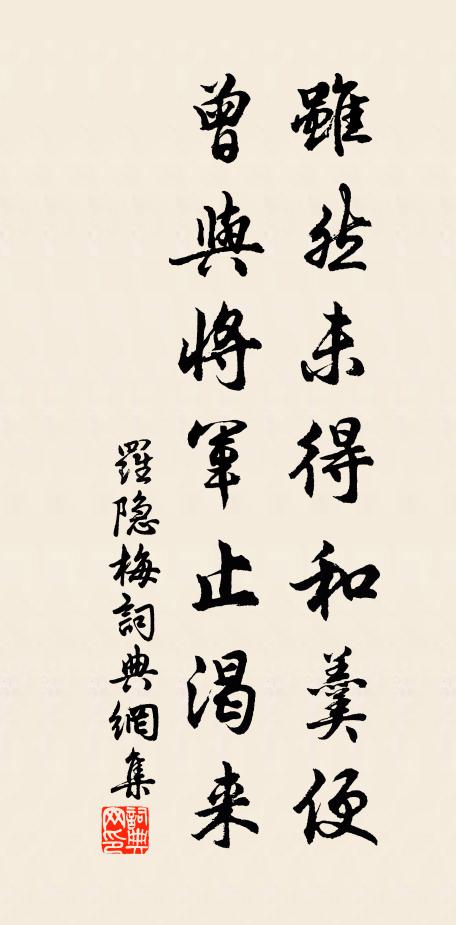 雖然未得和羹便
曾與將軍止渴来
羅隐梅詞典網集
詞典网印